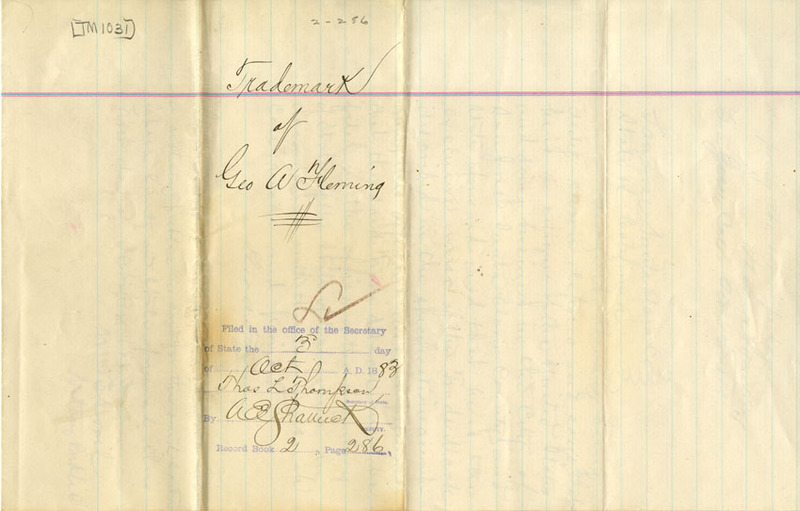 [TM1031]
2-286
Trademark
of
Geo A Fleming
Filed in the office of the Secretary
of State the 5 day
of Oct A. D. 1883
Thos L Thompson
Secretary of State.
By A E Shattuck
DEPUTY.
Record Book 2, Page 286,